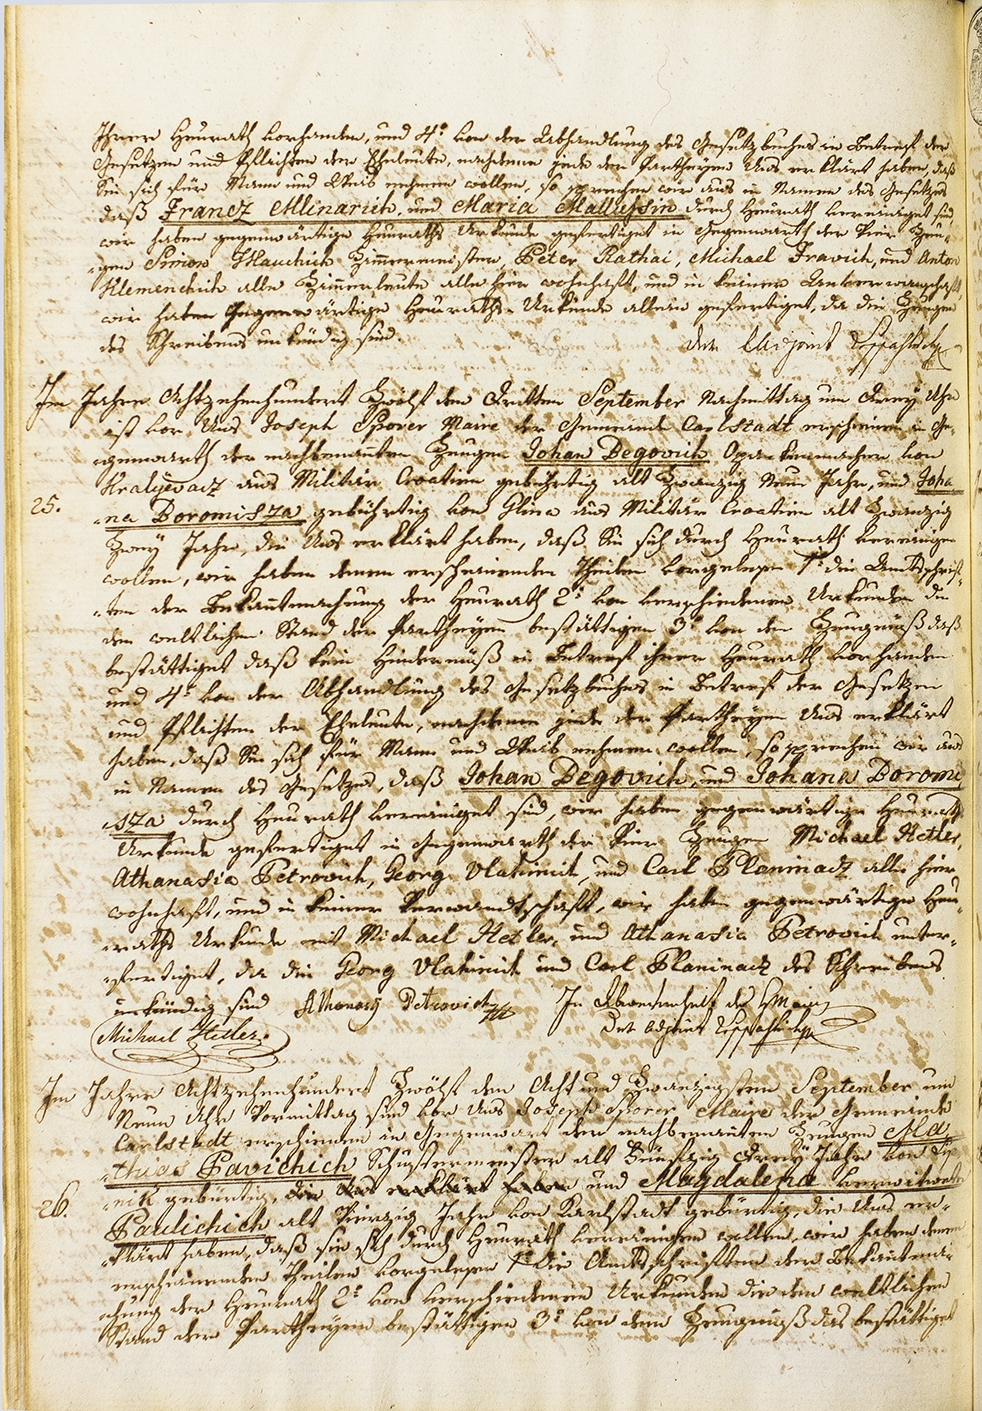 Ihrer Heurath vorhanden, und 4º von der Abhandlung des Gesetzbuches in Betref der
Gesetzen und Pflichten der Eheleute, nachdeme jede der Partheyen Uns erklärt haben, daß
Sie sich für Mann und Weib nehmen wollen, so sprechen wir aus in Namen des Gesetzes
daß Francz Mlinarich, und Maria Mallussin durch Heurath vereiniget sind
wir haben gegenwärtige Heuraths Urkunde gefertiget in Gegenwarth der vier Zeu-
-gen Simon Zimmermeister, Peter Rathai, Michael Travich, und Anton
Klemenchich alle Zimmerleute alle hier wohnhaft, und in keiner Anverwandschaft
wir haben gegenwärtige Heuraths-Urkunde allein gefertiget, da die Zeugen
des Schreibens unkündig sind. der Adjoint
Im Jahre Achtzehenhundert Zwölf den Dritten September Nachmittag um Drey Uhr
ist vor Uns Joseph Sporer Maire der Gemeinde Carlstadt erschienen in Ge-
-genwarth der nachbenannten Zeugen Johan Degovich Opankenmacher von
Kralyevacz aus Militär Croatien gebührtig alt Zwanzig Neun Jahr, und Joha
25. -na Boromisza gebührtig von Glina aus Militär Croatien alt Zwanzig
Zwey Jahr, die Uns erklärt haben, daß Sie sich durch Heurath vereinigen
wollen, wir haben denen erscheinenden Theilen vorgelesen 1º die Amtsschrif-
-ten der Bekantmachung der Heurath 2º von verschiedenen Urkunden die
den weltlichen Stand der Partheyen bestättigen 3º von dem Zeugnüß daß
bestättiget daß kein Hindernüß in Betref ihrer Heurath vorhanden
und 4º von der Abhandlung des Gesetzbuches in Betref der Gesetzen
und Pflichten der Eheleute, nachdeme jede der Partheyen Uns erklärt
haben, daß Sie sich für Mann und Weib nehmen wollen, so sprechen wir aus
in Namen des Gesetzes, daß Johan Degovich, und Johana Boromi
-sza durch Heurath vereiniget sind, wir haben gegenwärtige Heuraths
Urkunde gefertiget in Gegenwarth der vier Zeugen Michael Hetler,
Athanasia Petrovich, Georg Vlahinich, und Carl Planinacz alle hier
wohnhaft, und in keiner Verwandtschaft, wir haben gegenwärtige Heu-
-raths Urkunde mit Michael Hetler, und Athanasia Petrovich unter-
-fertiget, da die Georg Vlahinich und Carl Planinacz des Schreibens
unkündig sind Athanasy Petrovich In Abwesenheit des H Maire
Michael Hetler. Der adjoint
Im Jahre Achtzehenhundert Zwölf den Acht und Zwanzigsten September um
Neun Uhr Vormittag sind vor Uns Joseph Sporer Maire der Gemeinde
Carlstadt erschienen in Gegenwart der nachbenanten Zeugen Ma
-thias Pavichich Schustermeister alt Dreyßig Drey Jahr von
26. -nik gebürtig, die Uns erklärt haben und Magdalena verwitwete
Paulichich alt Vierzig Jahr von Karlstadt gebürtig, die Uns er-
-klärt haben, daß sie sich durch Heurath vereinigen wollen, wir haben denen
erscheinenden Theilen vorgelesen 1º die Amtsschriften der Bekantma-
-chung der Heurath 2º von verschiedenen Urkunden die den weltlichen
Stand der Partheyen bestättigen 3º von dem Zeugnüß das bestättiget